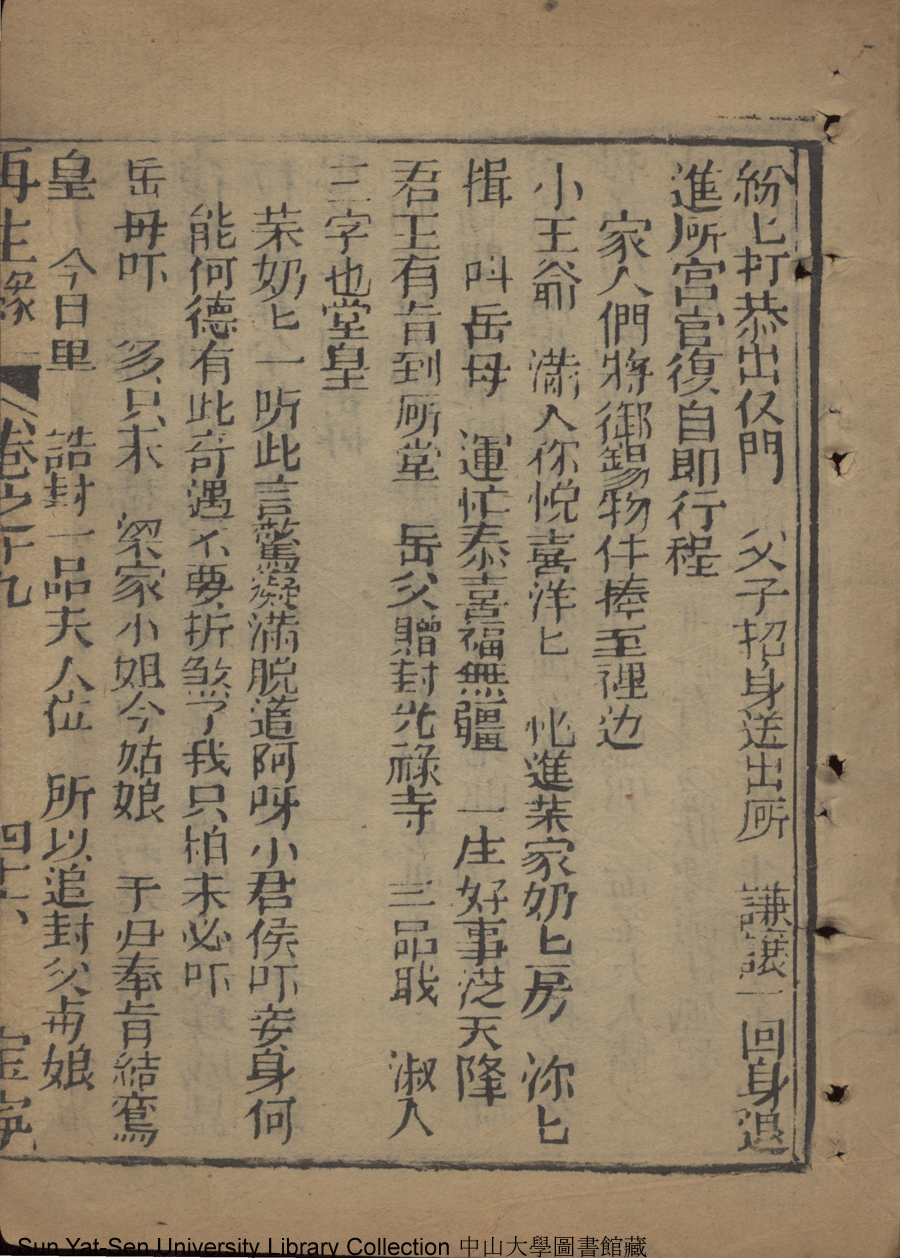 紛匕打恭出仪門 父子招身送出所 謙讓一回身退
進所宮官復自即行程
家人們將御錫物件捧至裡边
小王爺 滿人你悅喜洋匕 忙進茉家奶匕房 深匕
揖 叫岳母 運忙恭喜福無疆 一生好事從天降
君王有旨到所堂 岳父贈封光祿寺 三品戝 淑人
三字也堂皇
茉奶匕一听此言驚凝滿脫道阿呀小君侯吓妾身何
能何德有此奇遇不要折煞了我只怕未必吓
岳母吓 多只未 梁家小姐今姑娘 于归奉旨結鸞
皇 今日里 誥封一品夫人位 所以追封父母娘
再生緣 卷之十九 四十六 宝寧
Sun Yat-Sen University Library Collection 中山大學圖書館藏